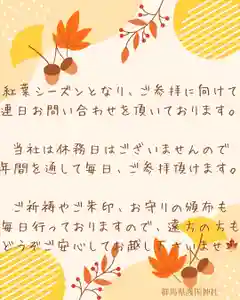 紅葉シーズンとなり、ご参拝に向けて
連日お問い合わせを頂いております。
当社は休務日はございませんので
年間を通して毎日、ご参拝頂けます。
ご祈祷やご朱印、お守りの頒布も
毎日行っておりますので、遠方の方も
どうぞご安心してお越し下さいませ
群馬県
神社